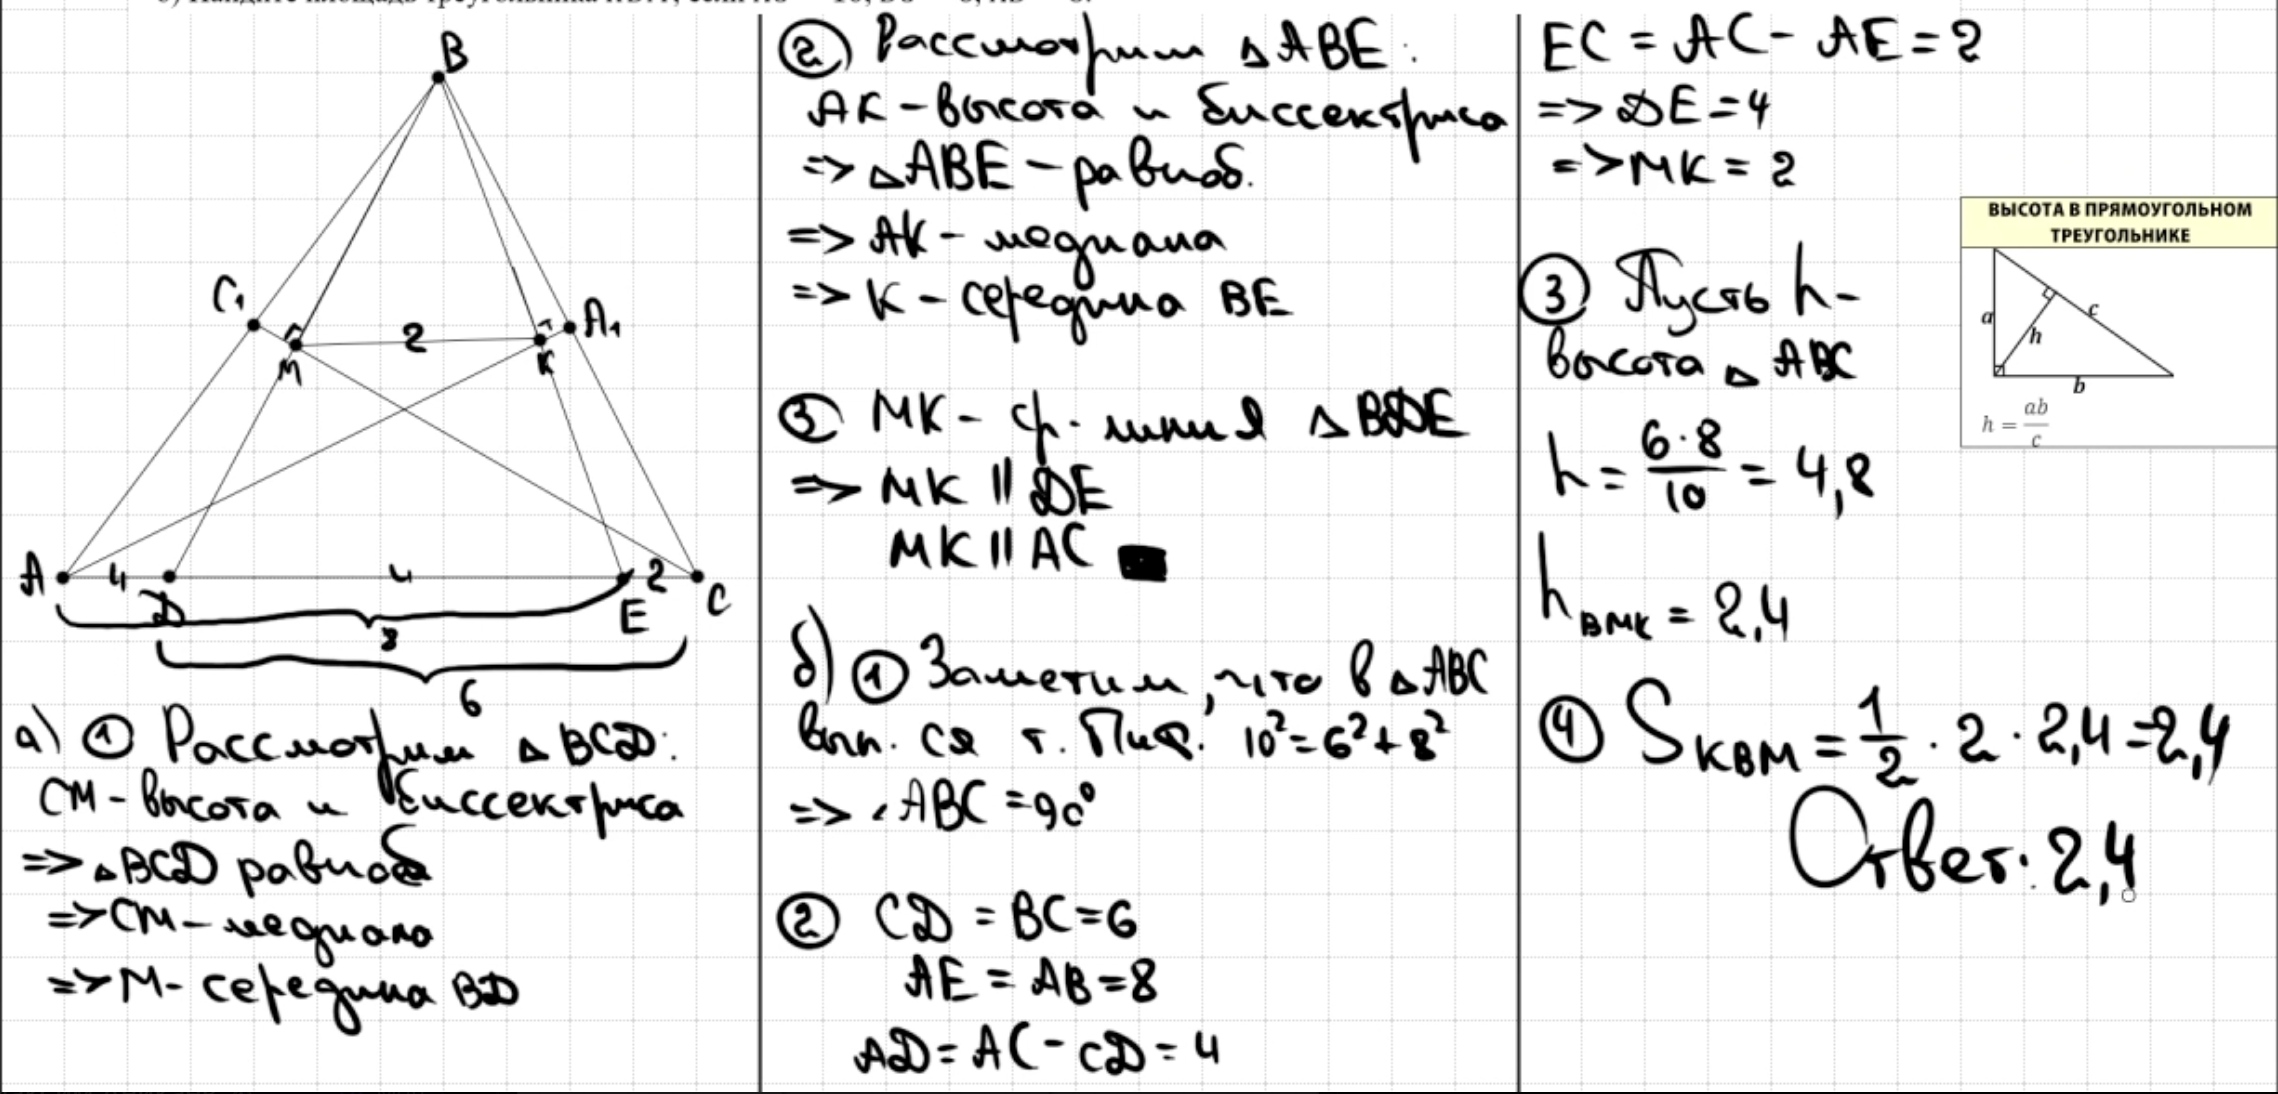 B
C₁
A₁
M
2
K
A
4
D
4
E
2
C
8
6
а) ① Рассмотрим △BCD:
CM - высота и биссектриса
=> △BCD равноб
=> CM - медиана
=> M - середина BD
② Рассмотрим △ABE:
AK - высота и биссектриса
=> △ABE - равноб.
=> AK - медиана
=> K - середина BE
③ MK - ср. линия △BDE
=> MK || DE
MK || AC
б) ① Заметим, что в △ABC
вып. ся т. Пиф. 10² = 6² + 8²
=> ∠ABC = 90°
② CD = BC = 6
AE = AB = 8
AD = AC - CD = 4
EC = AC - AE = 2
=> DE = 4
=> MK = 2
③ Пусть h -
высота △ABC
h = 6·8/10 = 4,8
h BMK = 2,4
④ S KBM = 1/2 · 2 · 2,4 = 2,4
Ответ: 2,4
ВЫСОТА В ПРЯМОУГОЛЬНОМ
ТРЕУГОЛЬНИКЕ
a
h
c
b
h = ab/c